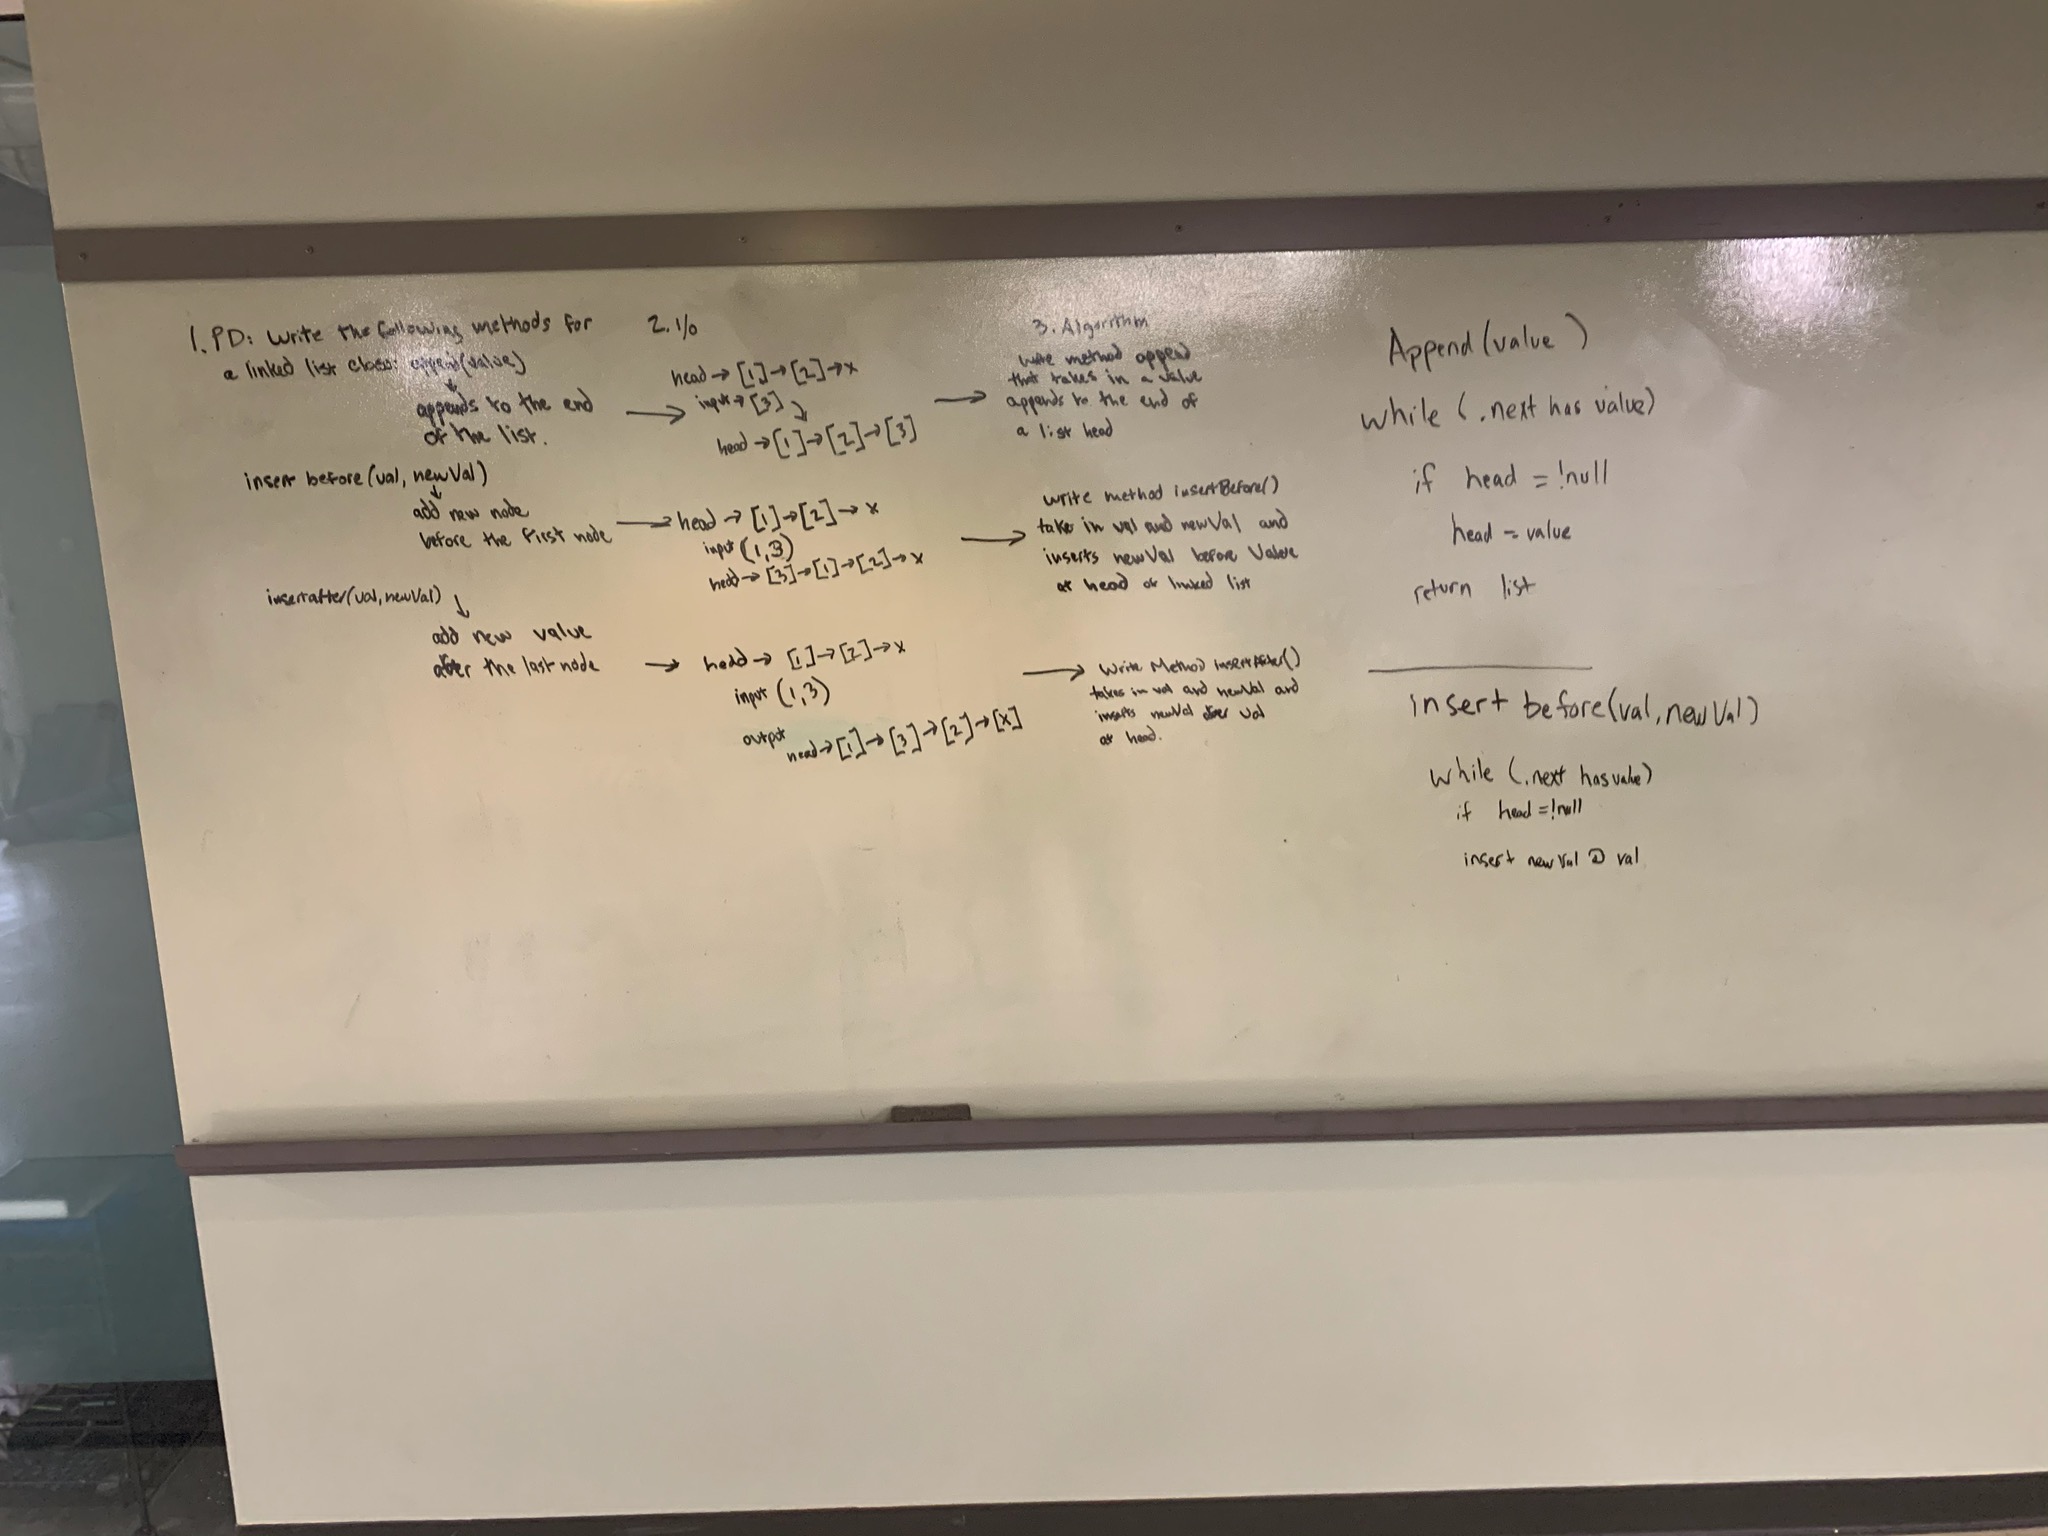 1. PD: Write the following methods for
a linked list class: append(value)
appends to the end
of the list.
insert before(val, newVal)
add new node
before the first node
insertafter(val, newVal)
add new value
after the last node
2. I/o
head → [1] → [2] → x
input → [3]
head → [1] → [2] → [3]
head → [1] → [2] → x
input (1,3)
head → [3] → [1] → [2] → x
head → [1] → [2] → x
input (1,3)
output
head → [1] → [3] → [2] → [x]
3. Algorithm
write method append
that takes in a value
appends to the end of
a list head
write method insertBefore()
take in val and newVal and
inserts newVal before Value
at head of linked list
Write Method insertAfter()
takes in val and newVal and
inserts newVal after val
at head.
Append (value )
while ( .next has value)
if head = !null
head = value
return list
insert before(val, newVal)
while (.next has value)
if head =!null
insert newVal @ val